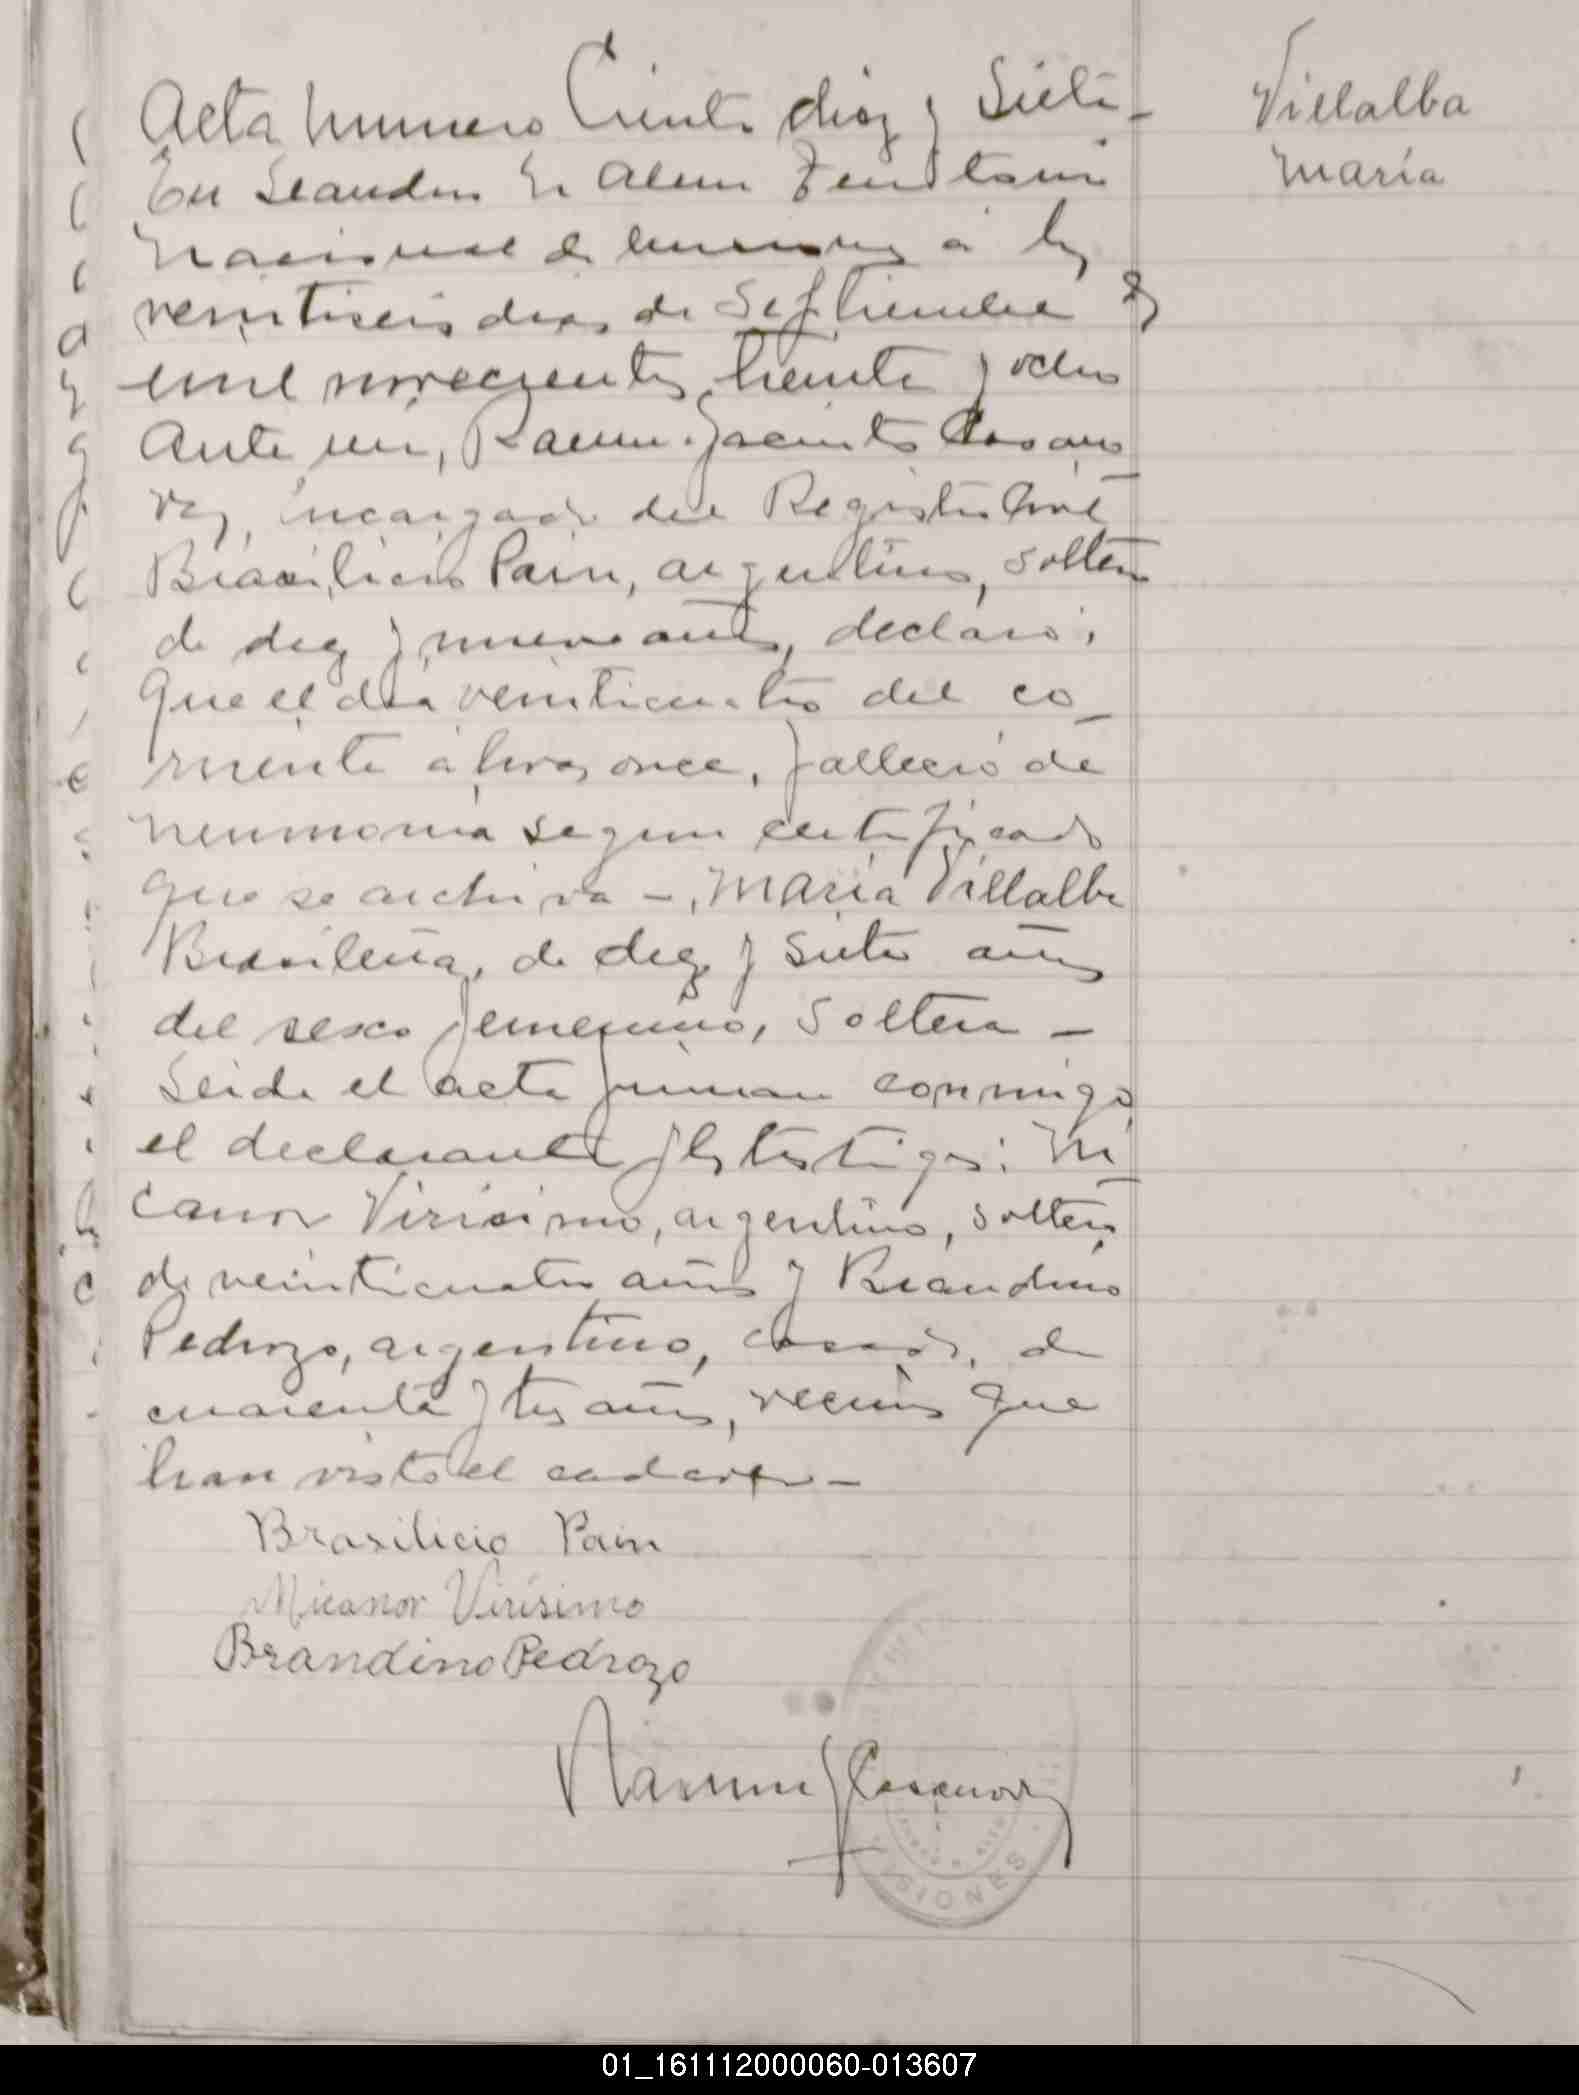 Acta Numero Ciento diez y Siete-
En Leandro N Alem Territorio
Nacional de Misiones a los
veintiseis dias de Septiembre de
mil novecientos treinta y ocho
Ante mi, Ramon Jacinto Casano
va, encargado del Registro Civil
Brasilicio Pain, argentino, soltero
de diez y nueve años, declaró:
Que el dia veinticuatro del co_
rriente a horas once, falleció de
neumonia segun certificado
que se archiva -, María Villalba
Brasileña, de diez y siete años
del sexo femenino, Soltera -
Leida el acta firman conmigo
el declarante y los testigos: Ni
canor Virisimo, argentino, soltero
de veinticuatro años y Brandino
Pedrozo, argentino, casado, de
cuarenta y tres años, vecinos que
han visto el cadaver -
Brasilicio Pain
Nicanor Virísimo
Brandino Pedrozo
Ramon J Casanova
MISIONES
Villalba
María
01_161112000060-013607